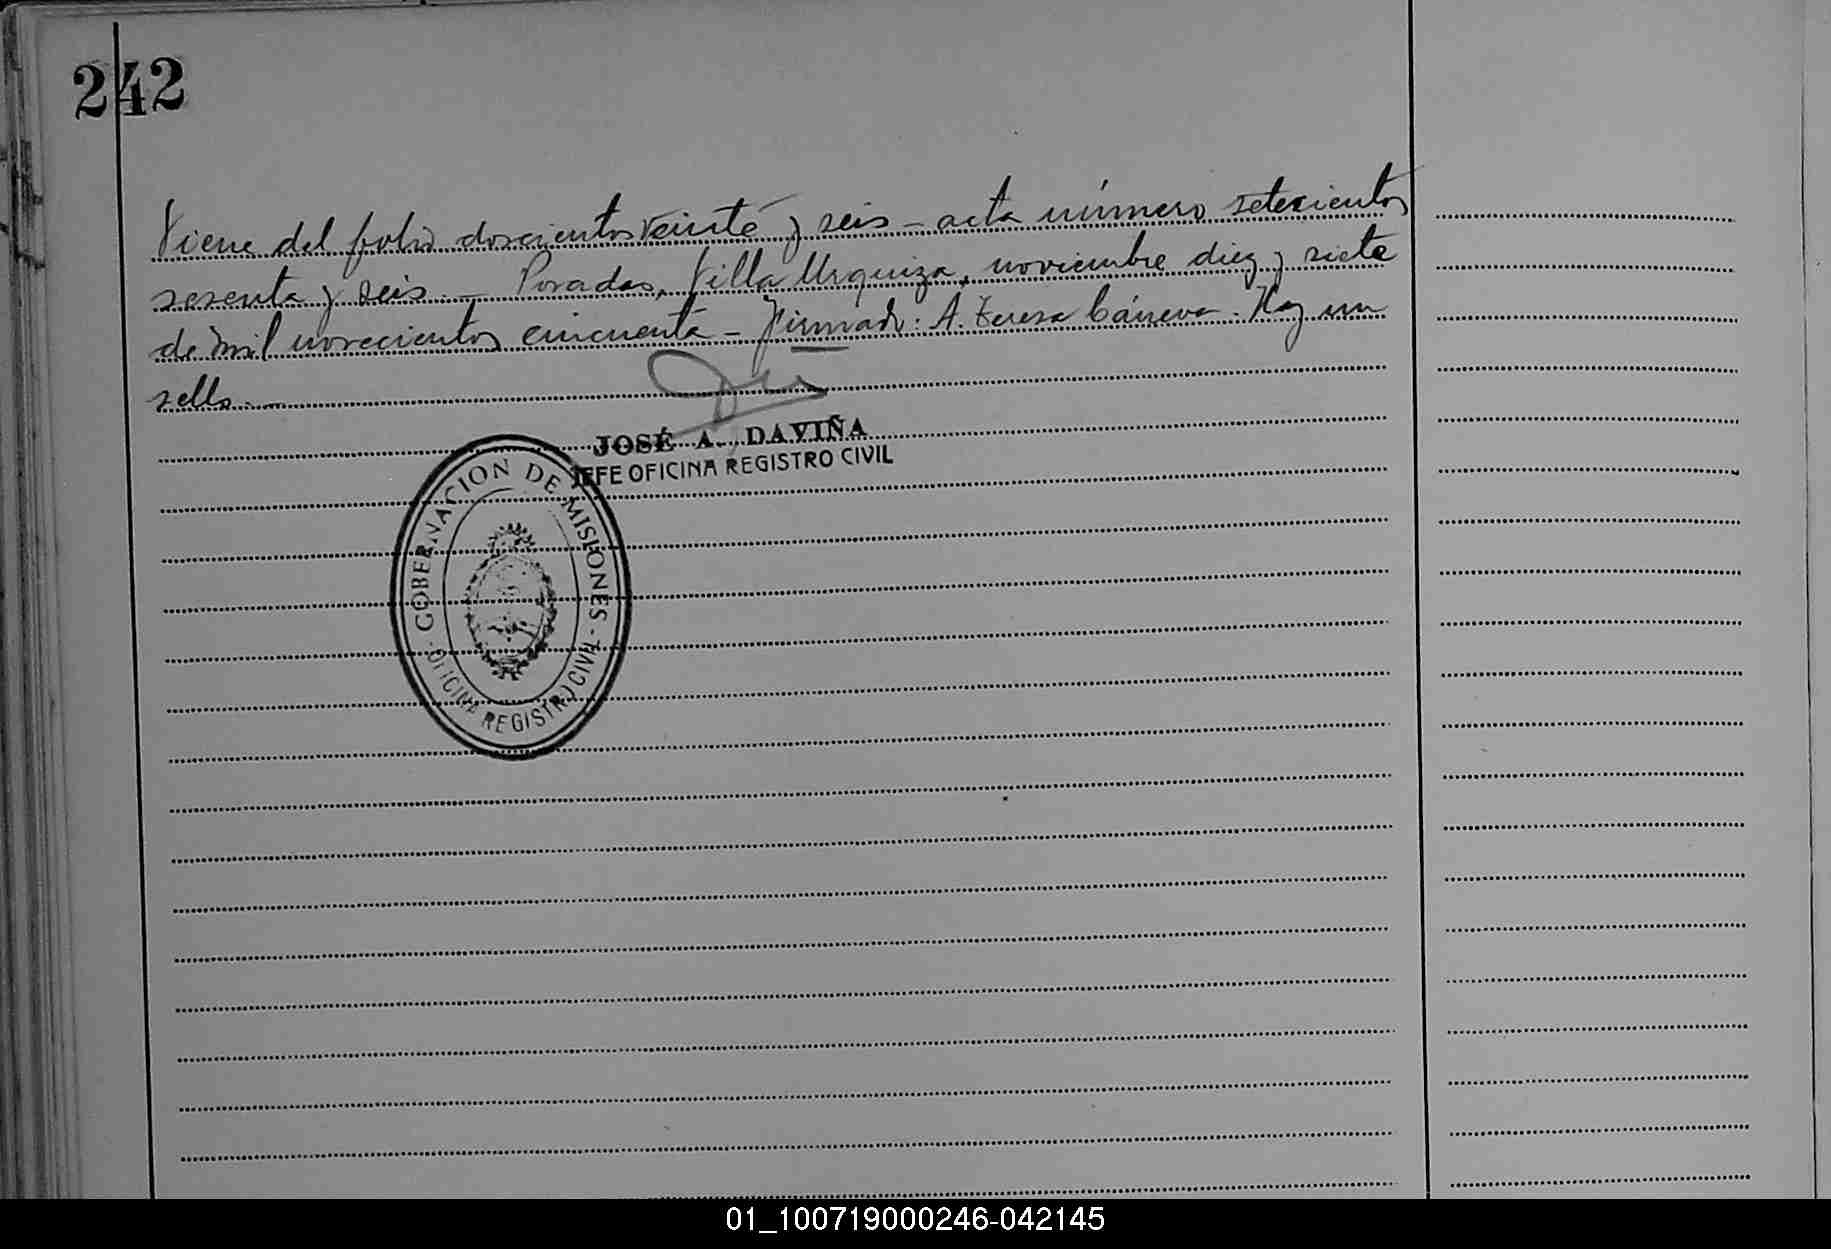 242
Viene del folio doscientos veinte y seis – acta número setecientos
sesenta y seis. – Posadas, Villa Urquiza, noviembre diez y siete
de mil novecientos cincuenta – Firmado: A. Teresa . Hay un
sello. –
JOSÉ A. DAVIÑA
JEFE OFICINA REGISTRO CIVIL
GOBERNACION DE MISIONES
OFICINA REGISTRO CIVIL
01_100719000246-042145